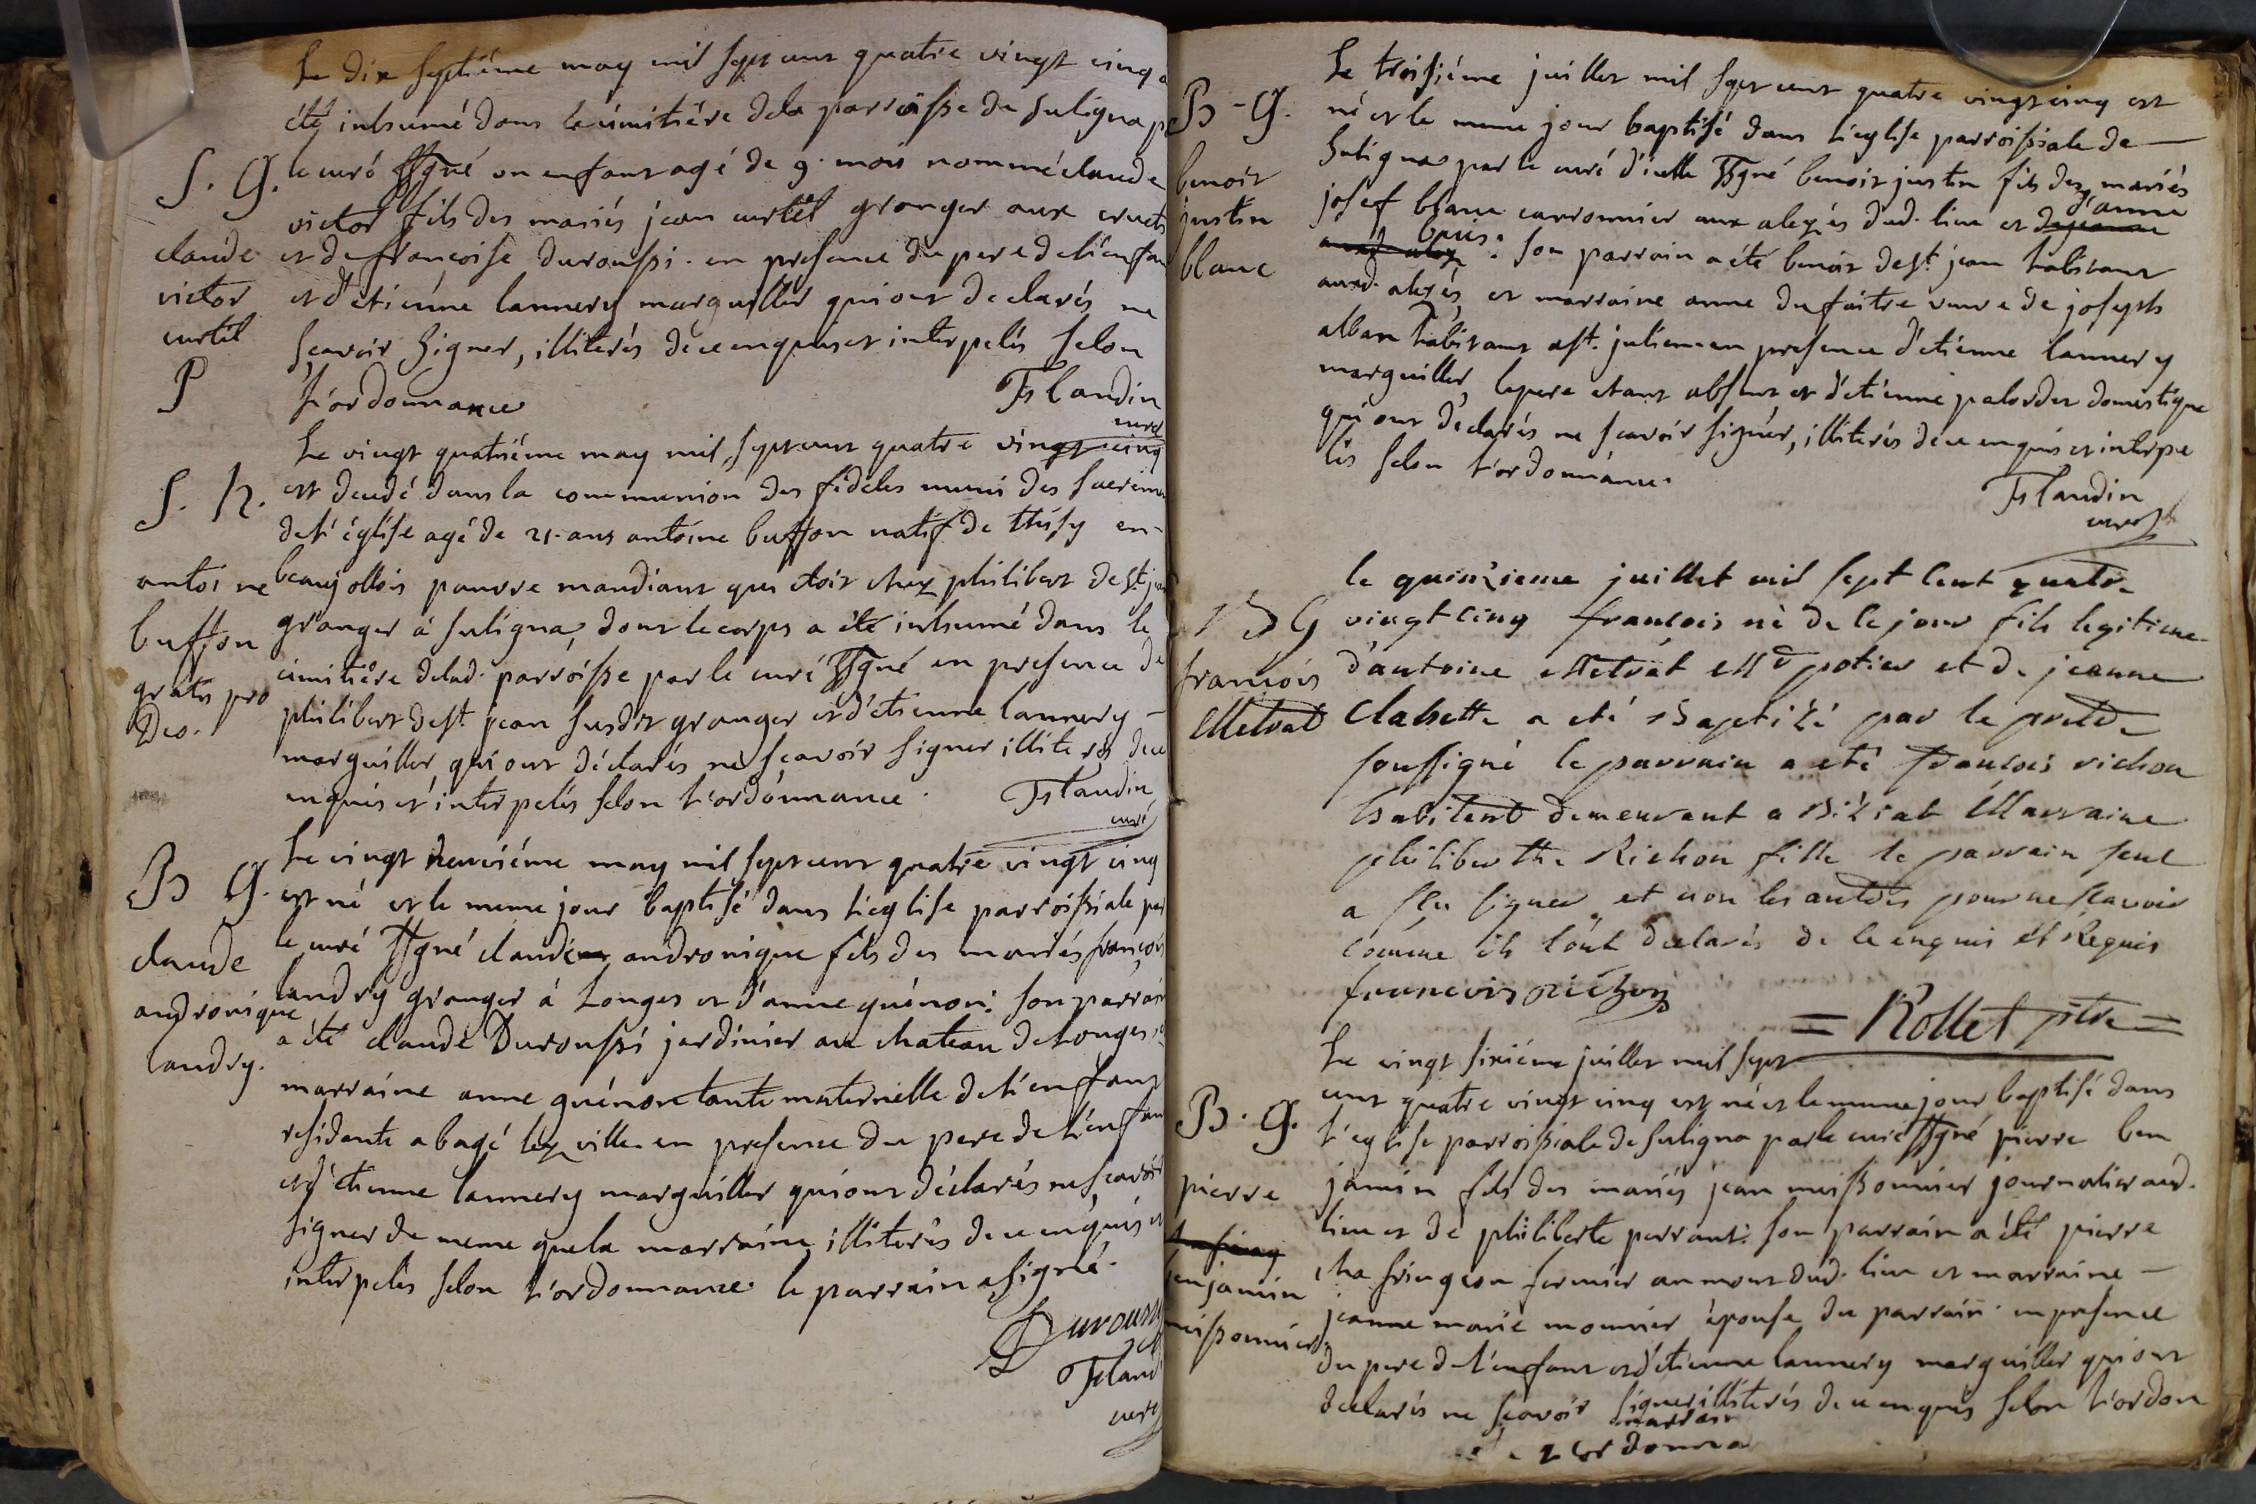 Le dix septiéme may mil sept cent quatre vingt cinq a
été inhumé dans le cimitière de la parroisse de suligna par
S. G. le curé ssgné un enfant agé de 9. mois nommé claude
victor fils des mariés jean curtil granger aux
claude et de francoise duroussi. en presence du pere de l'enfant
victor et d'etiénne lannery marguillier qui ont declarés ne
curtil sçavoir signer, illiterés de ce enquis et interpelés selon
P l'ordonnance
Flandin
curé
Le vingt quatriéme may mil sept cent quatre vingt cinq
S. h. est decedé dans la communion des fideles muni des sacremens
de l'église agé de 21. ans antoine buffon natif de thisy en-
antoine beaujollois pauvre mandiant qui etoit chez philibert de st. jean
buffon granger à suligna, dont le corps a été inhumé dans le
gratis pro cimitière de lad. parroisse par le curé ssgné en presence de
Deo. philibert de st. jean susdit granger et d'etienne lannery -
marguillier, qui ont déclarés ne sçavoir signer illiterés de ce
enquis et interpelés selon l'ordonnance.
Flandin
curé
B G. Le vingt neuviéme may mil sept cent quatre vingt cinq
est né et le meme jour baptisé dans l'eglise parroissiale par
claude le curé ssgné claude andronique fils des mariés françois
andronique landry granger à Longes et d'anne guénon: son parrain
landry. a été claude Duroussi jardinier au chateau de Longes,
marraine anne guénon tante maternelle de l'enfant
residante a bagé léz ville en presence du pere de l'enfant
et d'etienne lannery marguillier qui ont déclarés ne sçavoir
signer de meme que la marraine illiterés de ce enquis et
interpelés selon l'ordonnance. le parrain a signé.
Duroussy
Fland
curé
Le troisiéme juillet mil sept cent quatre vingt cinq est
B - G. né et le meme jour baptisé dans l'eglise parroissiale de -
benoit Suligna par le curé d'icelle ssgné benoit justin fils des mariés
justin josef blanc carronnier aux alezés dud. lieu et d'anne
blanc buis: son parrain a été benoit de st. jean habitant
auxd. alezés, et marraine anne dufaitre veuve de joseph
alban habitant a st. julien en presence d'etiénne lannery
marguillier, le pere etant absent et d'etienne palordet domestique
qui ont déclarés ne sçavoir signer, illiterés de ce enquis et interpe
lés selon l'ordonnance.
Flandin
curé
le quinzieme juillet mil sept cent quatre
B G vingt cinq francois né de ce jour fils legitime
francois d'antoine Metrat Md potier et de jeanne
Metrat Clabette a eté Baptizé par le pretre
soussigné le parrain a eté francois richon
habitant demeurant a Biziat Marraine
philiberthe Richon fille le parrain seul
a sçu signer et non les autres pour ne sçavoir
comme ils l'ont declarés de ce enquis et Requis
francois richon
= Rollet ptre =
Le vingt sixiéme juillet mil sept
cent quatre vingt cinq est né et le meme jour baptisé dans
B. G. l'eglise parroissiale de suligna par le curé ssgné pierre ben
pierre jamin fils des mariés jean meissonnier journalier aud.
lieu et de philiberte perrant: son parrain a été pierre
benjamin chafringeon fermier au mont dud. lieu et marraine -
meissonnier jeanne marie monnier épouse du parrain. en presence
du pere de l'enfant et d'etienne lannery marguillier qui ont
declarés ne sçavoir signer illiterés de ce enquis selon l'ordon